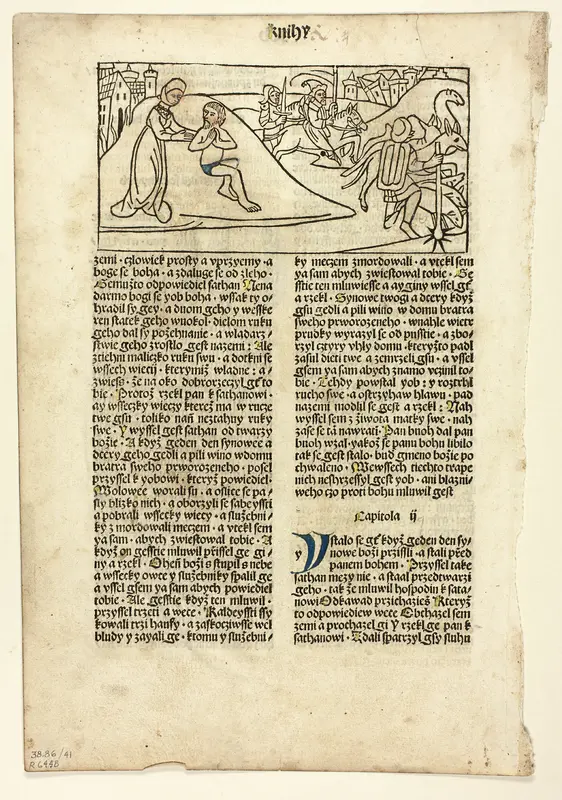 knihy
zemi · czlowiek prosty a vprzyemy · a
boge se boha · a zdaluge se od zleho ·
Gemužto odpowiediel sathan Nena
darmo bogi se yob boha · wssak ty o-
hradil sy gey · a duom geho y wesske
ren statek geho wnokol · dielom ruku
geho dal sy požehnanie · a wladarz-
stwie geho zrostlo gest nazemi : Ale
ztiehni maliczko ruku swu · a dotkni se
wssech wieczij · kterymiž wladne : a-
zwiess · že na oko dobrorzeczyl gt to
bie · Protož rzekl pan k sathanowi ·
ay wsseczky wieczy kterez ma w rucze
twe gsu · toliko nań neztahny ruky
swe · Y wyssel gest sathan od twarzy
božie · A když geden den synowee a
dcery geho gedli a pili wino wdomu
bratra sweho prworozeneho · posel
przyssel k yobowi · kteryž powiediel
Wolowee worali su · a oslice se pa-
sly blizko nich · a oborzyli se sabeyssti
a pobrali wssecky wiecy · a služebni-
ky z mordowali meczem · a vtekl sem
ya sam · abych zwiestowal tobie · A
když on gesstie mluwil přissel ge gi-
ny a rzekl · Oheń boži s stupil s nebe
a wssecky owce y služebniky spalil ge
a vssel gsem ya sam abych powiediel
tobie · Ale gesstie když ten mluwil ·
przyssel trzeti a wece · Kaldeyssti ssy
kowali trzi hanfy · a zaskoczywsse wel
bludy y zayali ge · ktomu y služebni-
ky meczem zmordowali · a vtekl sem
ya sam abych zwiestowal tobie · Ge
sstie ten mluwiesse a ay giny wssel gt
a rzekl · Synowe twogi a dcery když
gsu gedli a pili wino w domu bratra
sweho prworozeneho · wnahle wietr
prudky wyrazyl se od pusstie · a zbo-
rzyl cztyry vhly domu · kteryžto padl
zasul dieti twe a zemrzeli gsu · a vssel
gsem ya sam abych znamo vczinil to-
bie · Tehdy powstal yob : y roztrhl
rucho swe · a ostrzyhaw hlawu · pad
nazemi modlil se gest a rzekl : Nah
wyssel sem z žiwota matky swe · nah
zase se tā nawrati · Pan buoh dal pan
buoh wzal · yakož se panu bohu libilo
tak se gest stalo · bud gmeno božie po
chwaleno · Wewssech tiechto trape
nich nezhrzessyl gest yob · ani blazni-
weho czo proti bohu mluwil gest
Capitola ij
Y stalo se gt když geden den sy-
y nowe boži przissli · a stali před
panem bohem · Przyssel take
sathan mezy nie · a staal przedtwarzi
geho · tak že mluwil hospodin k sata-
nowi Odkawad prichazieš Kteryž
to odpowiedew wece Obchazel sem
zemi a prochazel gi Y rzekl ge pan k
sathanowi · Zdali spatrzyl gsy sluhu
38.86/41
R6448